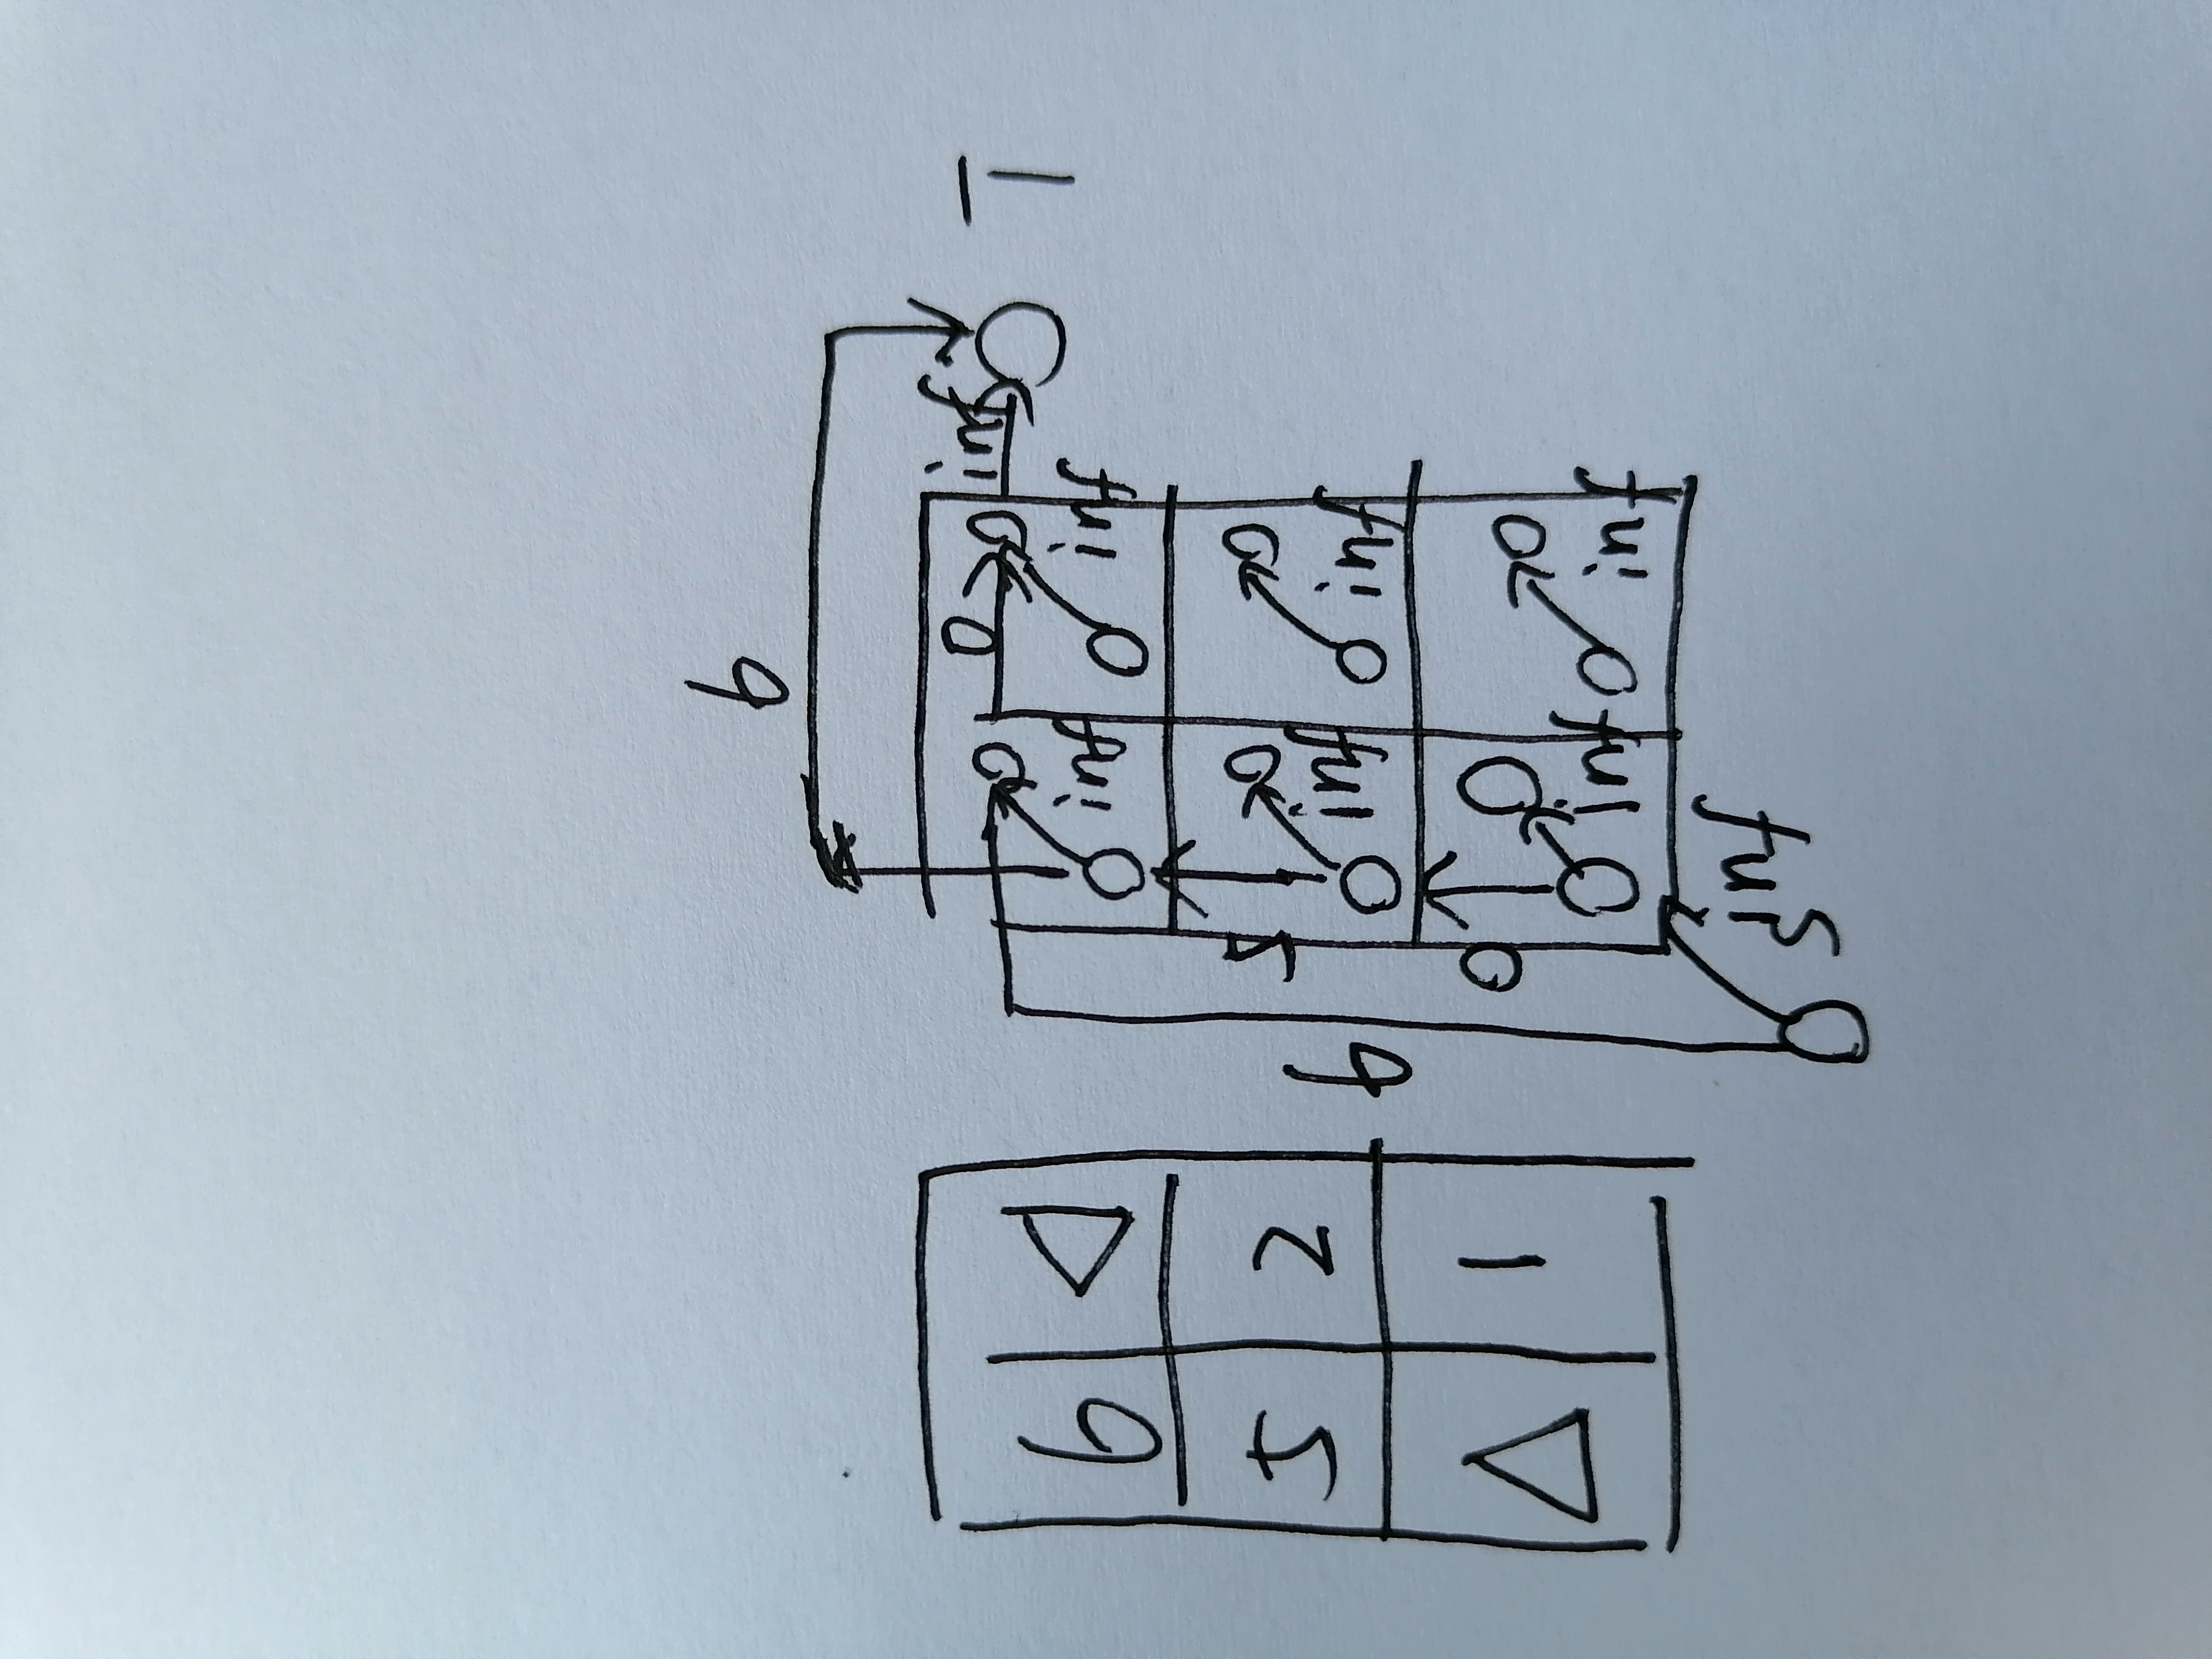 6
6
0 inf T
inf inf
5 2
5
6 inf inf
1
0
inf inf
inf
S